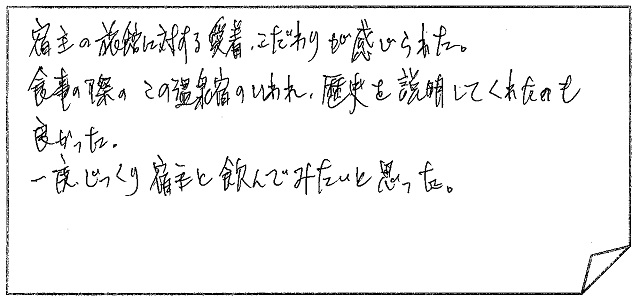 宿主の旅館に対する愛着、こだわりが感じられた。
食事の際の この温泉宿のいわれ、歴史を説明してくれたのも
良かった。
一度、じっくり宿主と飲んでみたいと思った。